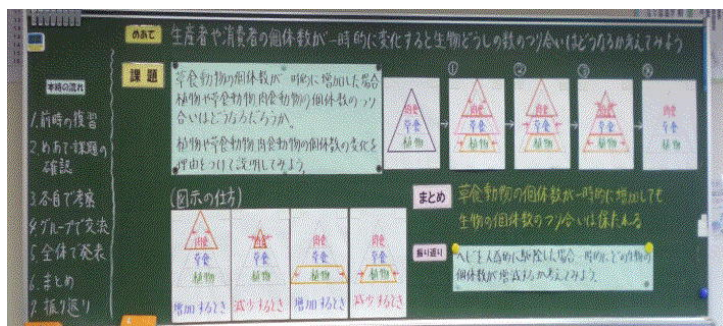 めあて
生産者や消費者の個体数が一時的に変化すると生物どうしの数のつり合いはどうなるか考えてみよう
本時の流れ
1.前時の復習
2.めあて・課題の
確認
3.各自で考察
4.グループで交流
5.全体で発表
6.まとめ
7.振り返り
課題
草食動物の個体数が一時的に増加した場合
植物や草食動物,肉食動物の個体数のつり
合いはどうなるだろうか。
植物や草食動物,肉食動物の個体数の変化を
理由をつけて説明してみよう。
①
②
③
肉食
草食
植物
肉食
草食
植物
肉食
草食
植物
肉食
草食
植物
肉食
草食
植物
(図示の仕方)
肉食
草食
植物
増加するとき
肉食
草食
植物
減少するとき
肉食
草食
植物
増加するとき
肉食
草食
植物
減少するとき
まとめ
草食動物の個体数が一時的に増加しても
生物の個体数のつり合いは保たれる
振り返り
ヘビを人為的に駆除した場合一時的にどの生物の
個体数が増減するか考えてみよう。